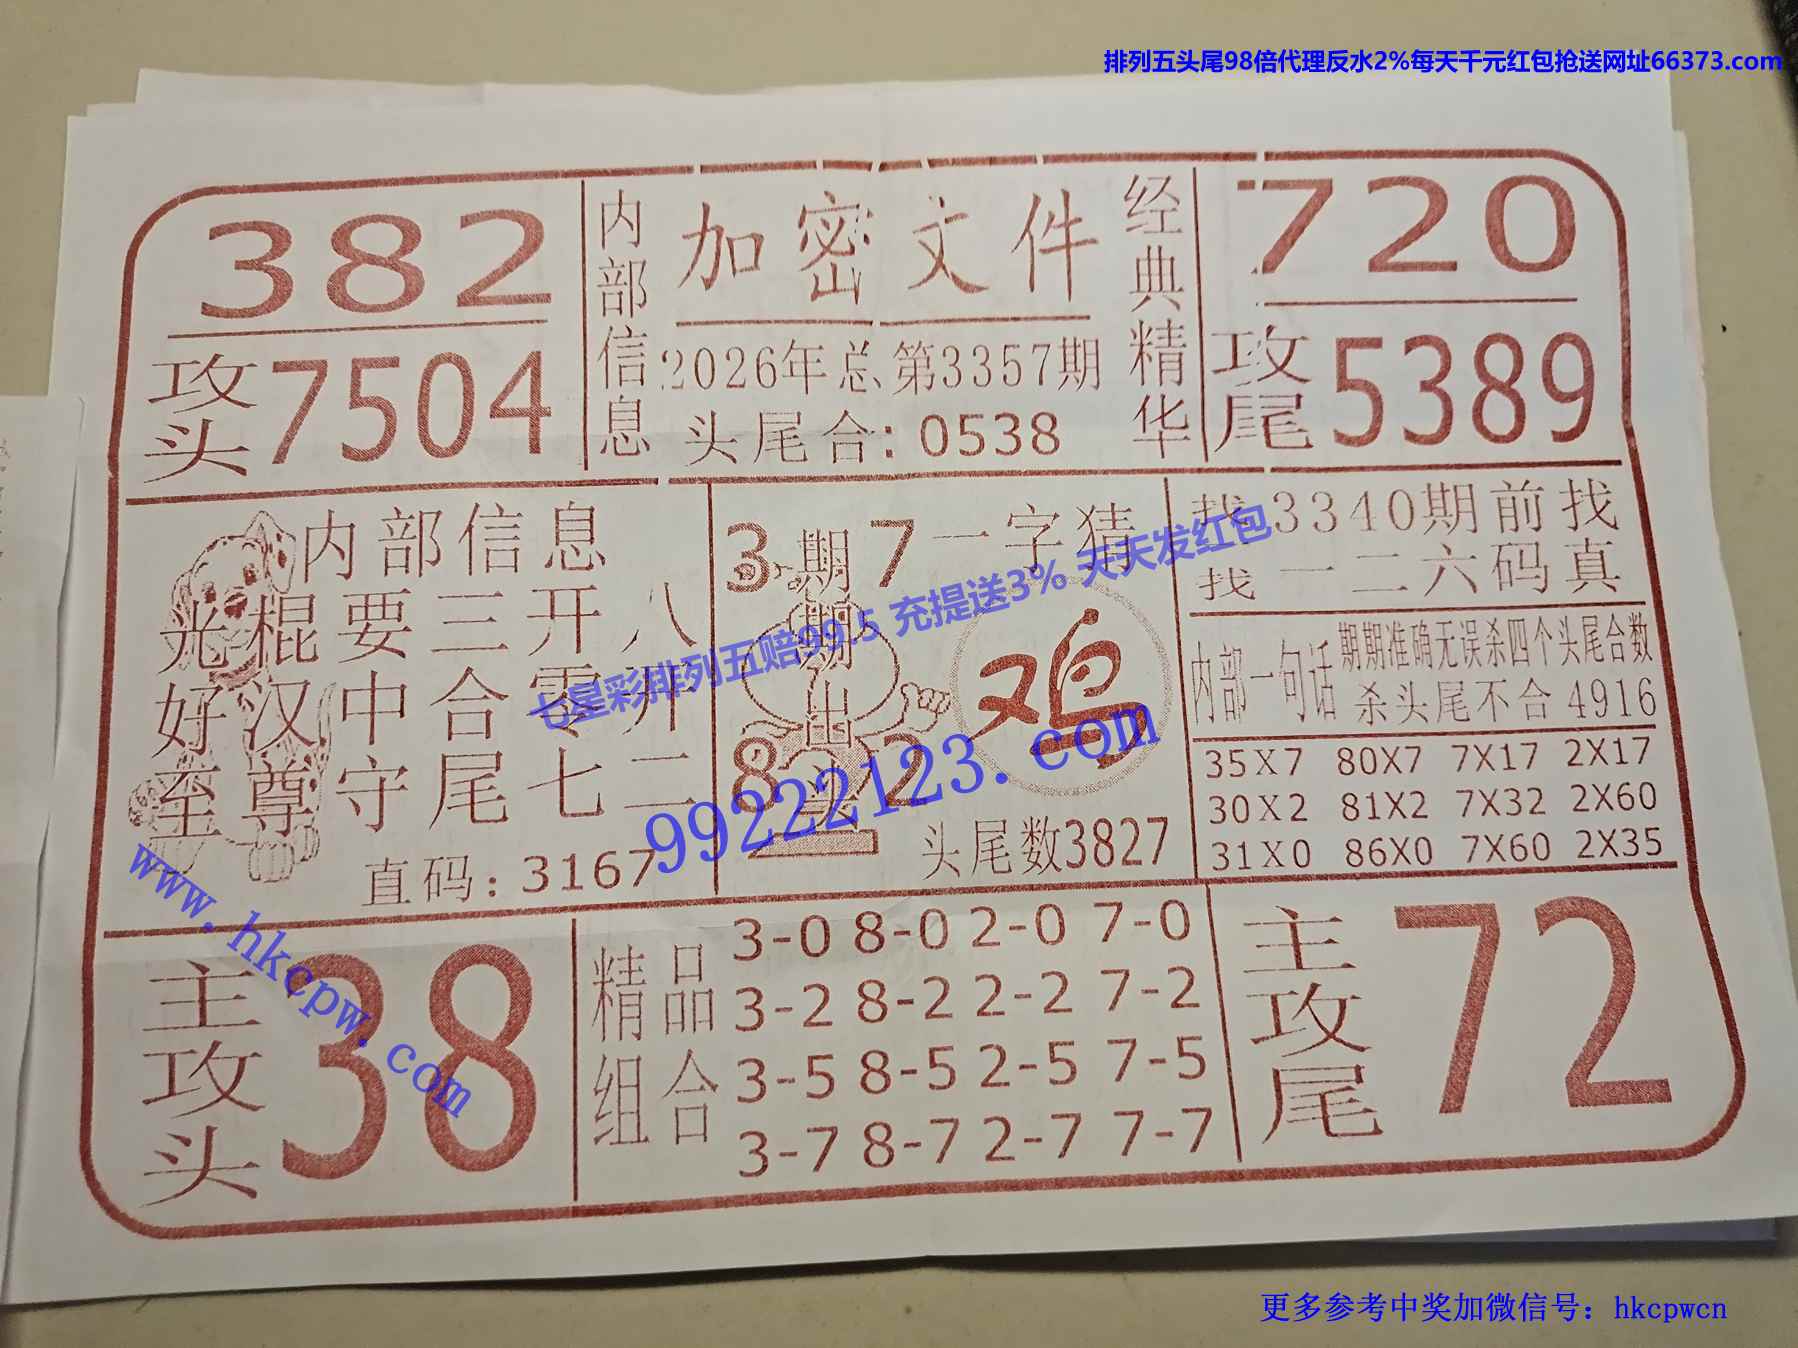 排列五头尾98倍代理反水2%每天千元红包抢送网址66373.com
382
攻头7504
内部信息
加密文件
2026年总第3357期
头尾合:0538
经典精华
720
攻尾5389
内部信息
光棍要三开八
好汉中合零开
至尊守尾七二
直码:3167
3期7一字猜
期期出头
8 2
鸡
头尾数3827
找3340期前找
找一二六码真
内部一句话
期期准确无误杀四个头尾合数
杀头尾不合4916
35X7 80X7 7X17 2X17
30X2 81X2 7X32 2X60
31X0 86X0 7X60 2X35
主攻头
38
精品组合
3-0 8-0 2-0 7-0
3-2 8-2 2-2 7-2
3-5 8-5 2-5 7-5
3-7 8-7 2-7 7-7
主攻尾
72
七星彩排列五赔99.5 充提送3% 天天发红包
99222123.com
www.hkcpw.com
更多参考中奖加微信号：hkcpwcn